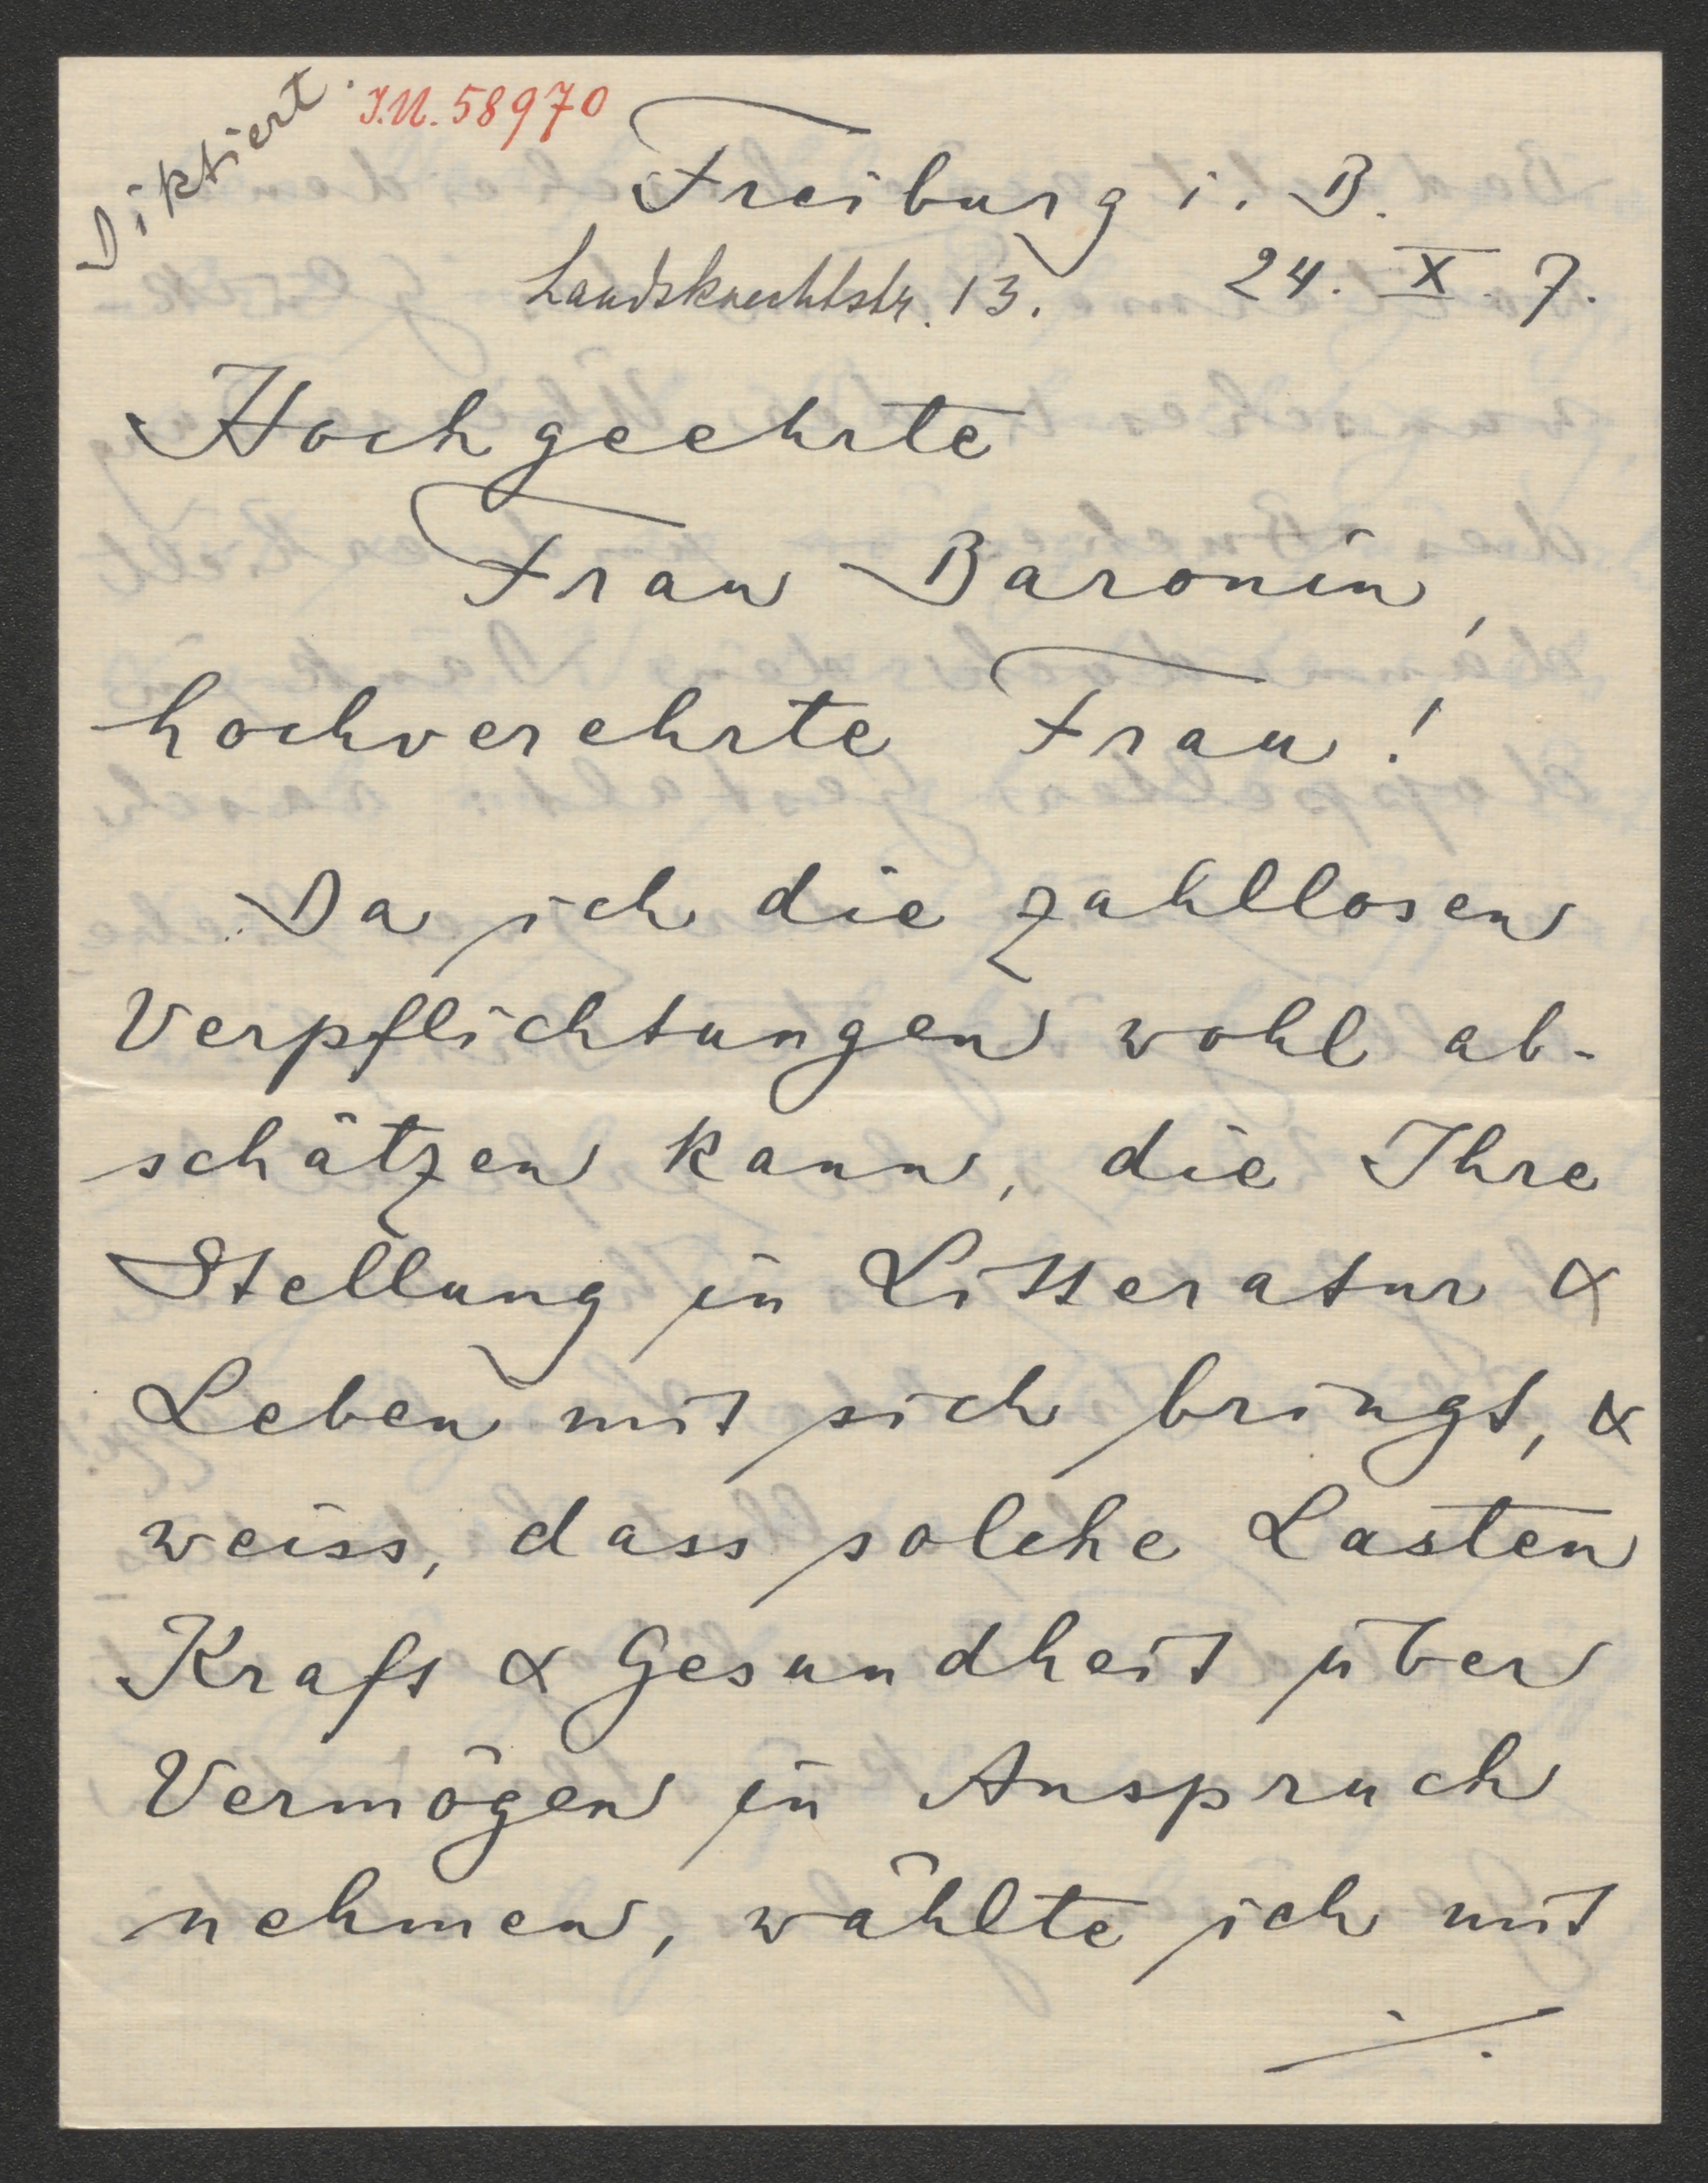 Diktiert.
I.N. 58970
Freiburg i. B.
Landsknechtstr. 13. 24. X. 7.
Hochgeehrte
Frau Baronin,
hochverehrte Frau!
Da ich die zahllosen
Verpflichtungen wohl ab-
schätzen kann, die Ihre
Stellung in Litteratur &
Leben mit sich bringt, &
weiss, dass solche Lasten
Kraft & Gesundheit über
Vermögen in Anspruch
nehmen, wählte ich mit
./.